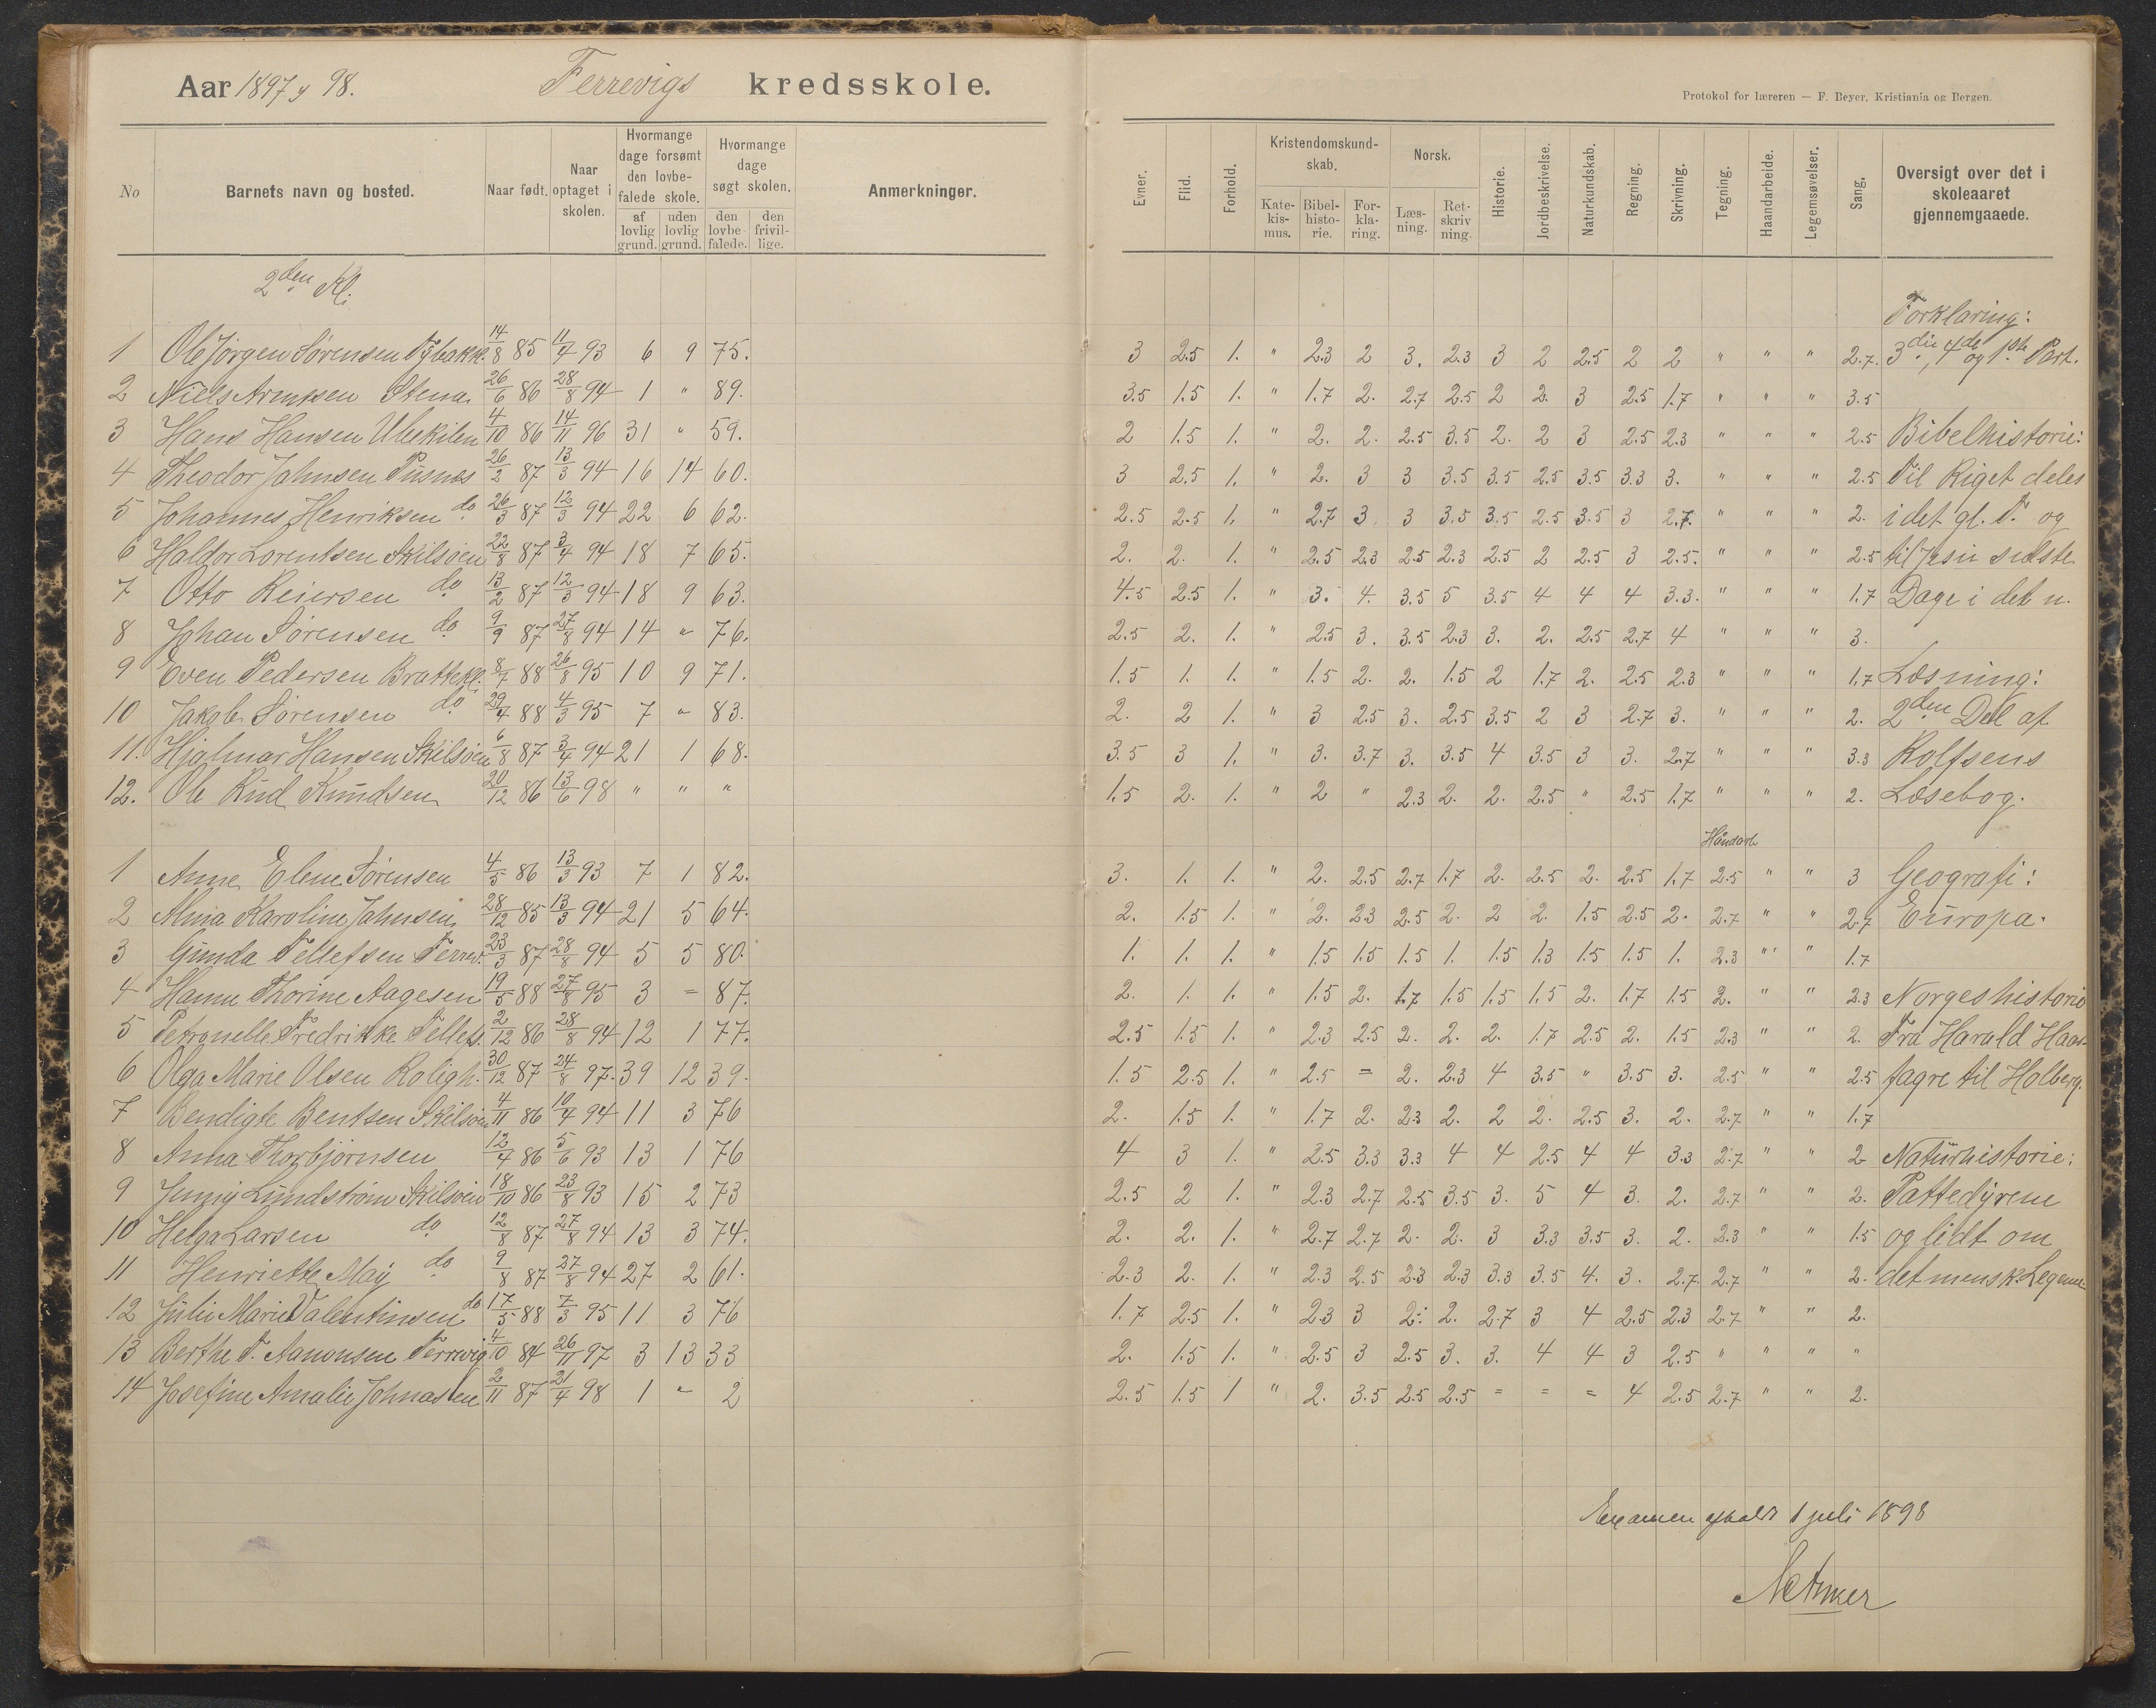 Aar 1897 y 98. Ferrevigs kredsskole.
No
Barnets navn og bosted.
Naar født.
Naar optaget i skolen.
Hvormange dage forsømt den lovbefalede skole.
af lovlig grund.
uden lovlig grund.
Hvormange dage søgt skolen.
den lovbefalede.
den frivillige.
Anmerkninger.
2den Kl.
1 Ole Jörgen Sörensen Tybakk. 14/8 85 11/4 93 6 9 75.
2 Niels Arentsen Stena. 26/6 86 28/8 94 1 " 89.
3 Hans Hansen Ubekilen 4/10 86 14/11 96 31 " 59.
4 Theodor Jahnsen Pusnes 26/2 87 13/3 94 16 14 60.
5 Johannes Henriksen do 26/3 87 12/3 94 22 6 62.
6 Haldor Lorentsen Skilsöen 22/8 87 3/4 94 18 7 65.
7 Otto Reiersen do 13/2 87 12/3 94 18 9 63.
8 Johan Sörensen do 9/9 87 27/8 94 14 " 76.
9 Even Pedersen Brattekl. 8/7 88 26/8 95 10 9 71.
10 Jakob Sörensen do 29/4 88 4/3 95 7 " 83.
11. Hjalmar Hansen Skilsöen 6/8 87 3/4 94 21 1 68.
12. Ole Rud Knudsen 20/12 86 13/6 98 " " "
1 Anne Elene Sörensen 4/5 86 13/3 93 7 1 82.
2 Alma Karoline Jahnsen 28/12 85 13/3 94 21 5 64.
3 Gunda Tellefsen Ferrev. 23/3 87 28/8 94 5 5 80.
4 Hanne Thorine Aagesen 19/5 88 27/8 95 3 = 87.
5 Petronelle Fredrikke Tellefs. 2/12 86 28/8 94 12 1 77.
6 Olga Marie Olsen Roligh. 30/12 87 24/8 97. 39 12 39.
7 Bendigte Bentsen Skilsöen 4/11 86 10/4 94 11 3 76
8 Anna Thorbjörnsen 12/4 86 5/6 93 13 1 76
9 Jenny Lundström Skilsöen 18/10 86 23/8 93 15 2 73
10 Helga Larsen do 12/8 87 27/8 94 13 3 74.
11 Henriette May do 9/8 87 27/8 94 27 2 61.
12 Julie Marie Valentinsen do 17/5 88 7/3 95 11 3 76
13 Berthe T. Aanonsen Ferrevig 4/10 84 26/11 97 3 13 33
14 Josefine Amalie Johnassen 2/11 87 21/4 98 1 " 2
Protokol for læreren — F. Beyer, Kristiania og Bergen.
Evner.
Flid.
Forhold.
Kristendomskundskab.
Katekismus.
Bibelhistorie.
Forklaring.
Norsk.
Læsning.
Retskrivning.
Historie.
Jordbeskrivelse.
Naturkundskab.
Regning.
Skrivning.
Tegning.
Haandarbeide.
Legemsøvelser.
Sang.
Oversigt over det i skoleaaret gjennemgaaede.
Forklaring:
3 2.5 1. " 2.3 2 3. 2.3 3 2 2.5 2 2 " " " 2.7. 3die, 4de og 1ste Part.
3.5 1.5 1. " 1.7 2. 2.7 2.5 2 2. 3 2.5 1.7 " " " 3.5
2 1.5 1. " 2. 2. 2.5 3.5 2. 2 3 2.5 2.3 " " " 2.5 Bibelhistorie:
3 2.5 1. " 2. 3 3 3.5 3.5 2.5 3.5 3.3 3. " " " 2.5 Til Riget deles
2.5 2.5 1. " 2.7 3 3 3.5 3.5 2.5 3.5 3 2.7. " " " 2. i det gl. T. og
2. 2. 1. " 2.5 2.3 2.5 2.3 2.5 2 2.5 3 2.5. " " " 2.5 til Jesu sidste
4.5 2.5 1. " 3. 4. 3.5 5 3.5 4 4 4 3.3. " " " 1.7 Dage i det n.
2.5 2. 1. " 2.5 3. 3.5 2.3 3. 2. 2.5 2.7 4 " " " 3.
1.5 1. 1. " 1.5 2. 2. 1.5 2 1.7 2. 2.5 2.3 " " " 1.7 Læsning:
2. 2 1. " 3 2.5 3. 2.5 3.5 2 3 2.7 3. " " " 2. 2den Del af
3.5 3 1. " 3. 3.7 3. 3.5 4 3.5 3 3. 2.7 " " " 3.3 Rolfsens
1.5 2. 1. " 2 " 2.3 2. 2. 2.5 " 2.5 1.7 " " " 2. Læsebog.
Håndarb
3. 1. 1. " 2. 2.5 2.7 1.7 2. 2.5 2. 2.5 1.7 2.5 " " 3 Geografi:
2. 1.5 1. " 2. 2.3 2.5 2. 2 2. 1.5 2.5 2. 2.7 " " 2.7 Europa.
1. 1. 1. " 1.5 1.5 1.5 1. 1.5 1.3 1.5 1.5 1. 2.3 " " 1.7
2. 1. 1. " 1.5 2. 1.7 1.5 1.5 1.5 2. 1.7 1.5 2. " " 2.3 Norgeshistorie
2.5 1.5 1. " 2.3 2.5 2. 2. 2. 1.7 2.5 2. 1.5 2.3 " " 2. Fra Harald Haar-
1.5 2.5 1. " 2.5 = 2. 2.3 4 3.5 " 3.5 3. 2.5 " " 2.5 fagre til Holberg.
2. 1.5 1. " 1.7 2. 2.3 2. 2 2. 2.5 3. 2. 2.7 " " 1.7
4 3 1. " 2.5 3.3 3.3 4 4 2.5 4 4 3.3 2.7 " " 2 Naturhistorie:
2.5 2 1. " 2.3 2.7 2.5 3.5 3. 5 4 3. 2. 2.7 " " 2. Pattedyrene
2. 2. 1. " 2.7 2.7 2. 2. 3 3.3 3.5 3. 2. 2.3 " " 1.5 og lidt om
2.3 2. 1. " 2.3 2.5 2.3 2.3 3.3 3.5 4. 3. 2.7. 2.7 " " 2. det mensk. Legeme
1.7 2.5 1. " 2.3 3 2. 2. 2.7 3 4 2.5 2.3 2.7 " " 2.
2. 1.5 1. " 2.5 3 2.5 3. 3. 4 4 3 2.5 " " " "
2.5 1.5 1 " 2. 3.5 2.5 2.5 = = = 4 2.5 2.7 " " 2.
Examen afholdt 1 juli 1898